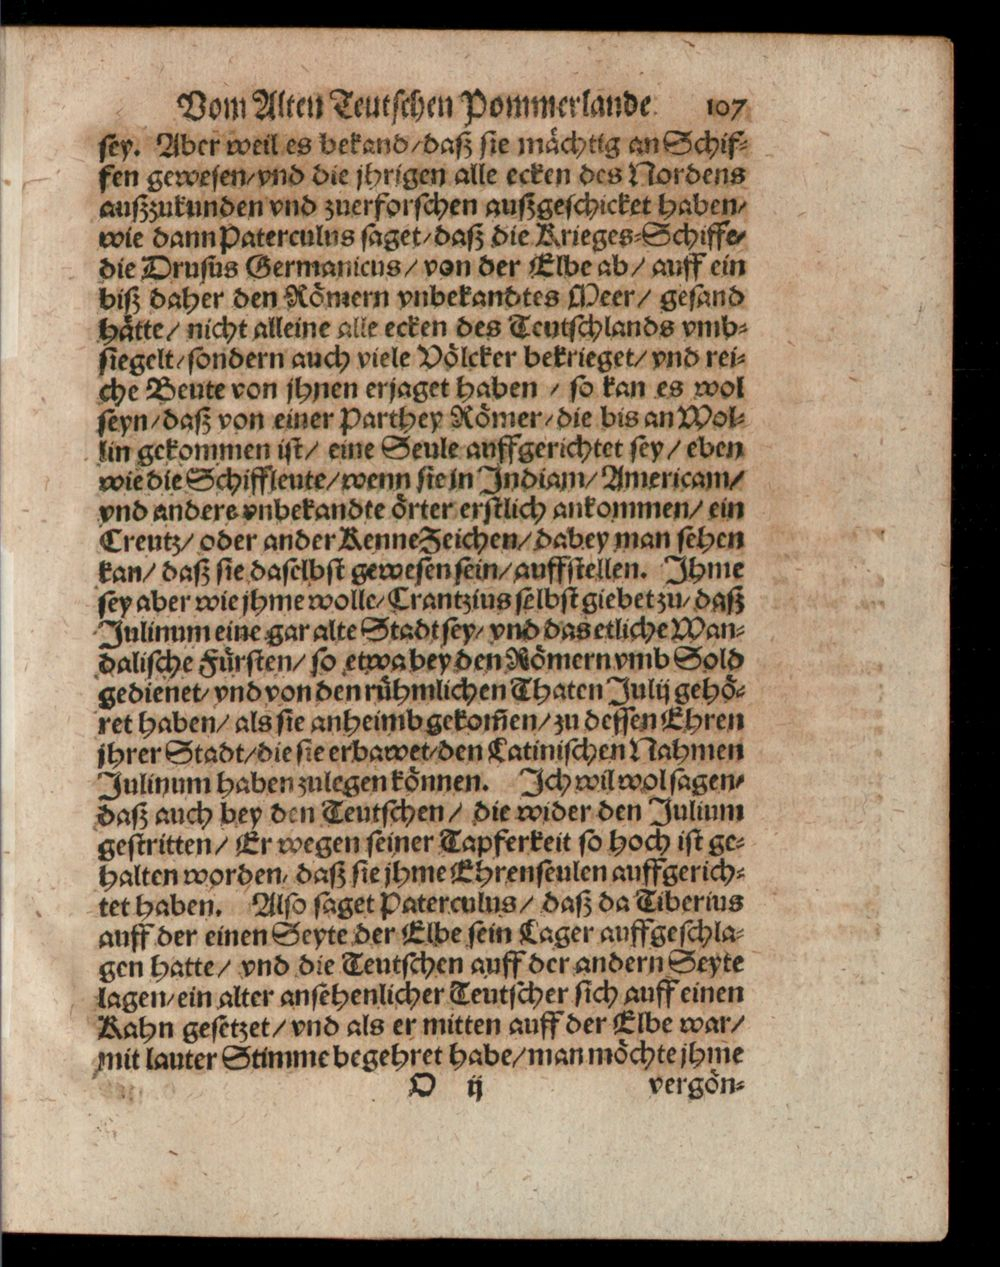 Vom Alten Teutschen Pommerlande. 107
sey. Aber weil es bekand/daß sie mächtig an Schif⸗
fen gewesen/vnd die jhrigen alle ecken des Nordens
außzukunden vnd zuerforschen außgeschicket haben/
wie dann Paterculus saget/daß die Krieges⸗Schiffe/
die Drusus Germanicus/ von der Elbe ab/ auff ein
biß daher den Römern vnbekandtes Meer/ gesand
hätte/ nicht alleine alle ecken des Teutschlands vmb⸗
siegelt/sondern auch viele Völcker bekrieget/ vnd rei⸗
che Beute von jhnen erjaget haben / so kan es wol
seyn/daß von einer Parthey Römer/die bis an Wol⸗
lin gekommen ist/ eine Seule auffgerichtet sey/ eben
wie die Schiffleute/wenn sie in Indiam/ Americam/
vnd andere vnbekandte örter erstlich ankommen/ ein
Creutz/ oder ander KenneZeichen/dabey man sehen
kan/ daß sie daselbst gewesen sein/auffstellen. Ihme
sey aber wie jhme wolle/Crantzius selbst giebet zu/daß
Julinum eine gar alte Stadt sey/ vnd das etliche Wan⸗
dalische Fürsten/ so etwa bey den Römern vmb Sold
gedienet/vnd von den rühmlichen Thaten Julij gehö⸗
ret haben/ als sie anheimb gekom̃en/zu dessen Ehren
jhrer Stadt/die sie erbawet/den Latinischen Nahmen
Julinum haben zulegen können. Ich wil wol sagen/
daß auch bey den Teutschen/ die wider den Julium
gestritten/ Er wegen seiner Tapferkeit so hoch ist ge⸗
halten worden/ daß sie jhme Ehrenseulen auffgerich⸗
tet haben. Also saget Paterculus/ daß da Tiberius
auff der einen Seyte der Elbe sein Lager auffgeschla⸗
gen hatte/ vnd die Teutschen auff der andern Seyte
lagen/ein alter ansehenlicher Teutscher sich auff einen
Kahn gesetzet/vnd als er mitten auff der Elbe war/
mit lauter Stimme begehret habe/man möchte jhme
O ij vergön⸗